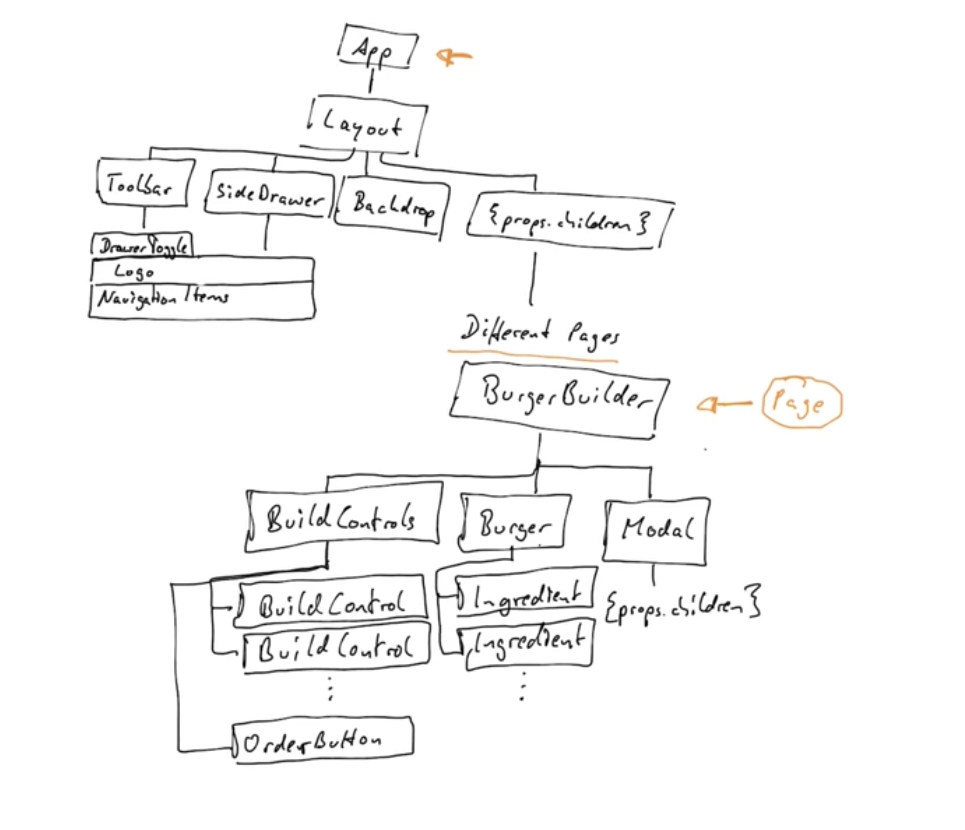 App
Layout
Toolbar
SideDrawer
Backdrop
{props.children}
DrawerToggle
Logo
Navigation Items
Different Pages
BurgerBuilder
Page
BuildControls
Burger
Modal
BuildControl
Ingredient
{props.children}
BuildControl
Ingredient
OrderButton